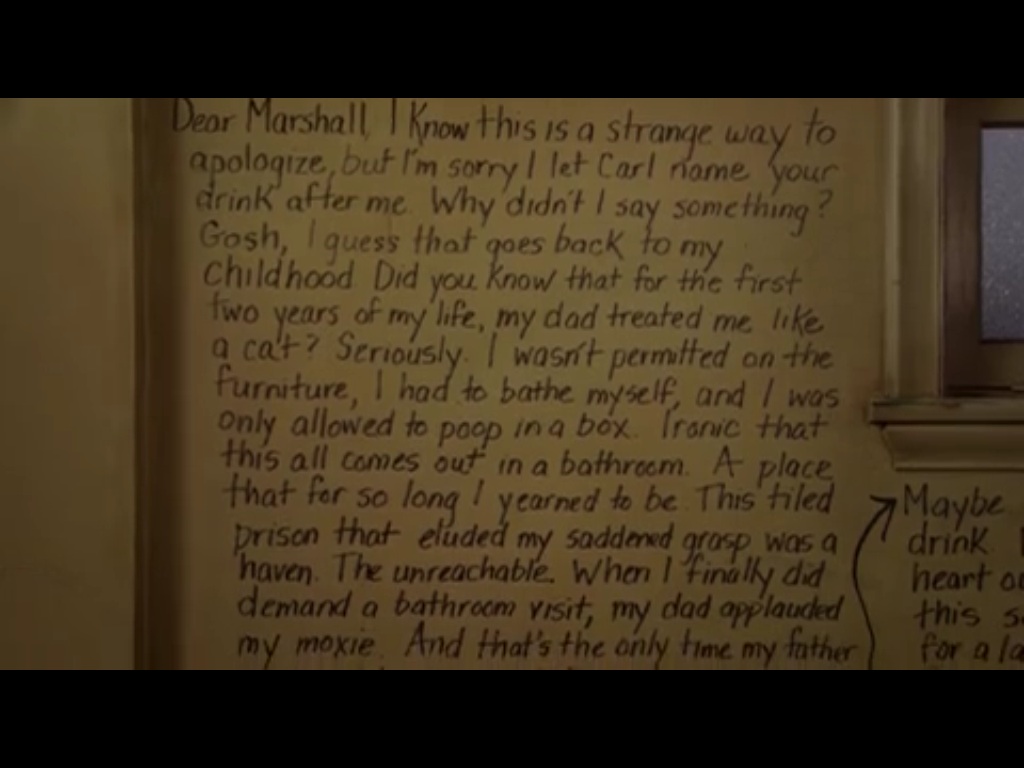 Dear Marshall, I Know this is a strange way to
apologize, but I'm sorry I let Carl name your
drink after me. Why didn't I say something?
Gosh, I guess that goes back to my
childhood. Did you Know that for the first
two years of my life, my dad treated me like
a cat? Seriously. I wasn't permitted on the
furniture, I had to bathe myself, and I was
only allowed to poop in a box. Ironic that
this all comes out in a bathroom. A place
that for so long I yearned to be. This tiled
prison that eluded my saddened grasp was a
haven. The unreachable. When I finally did
demand a bathroom visit, my dad applauded
my moxie. And that's the only time my father
Maybe
drink.
heart
this
for a